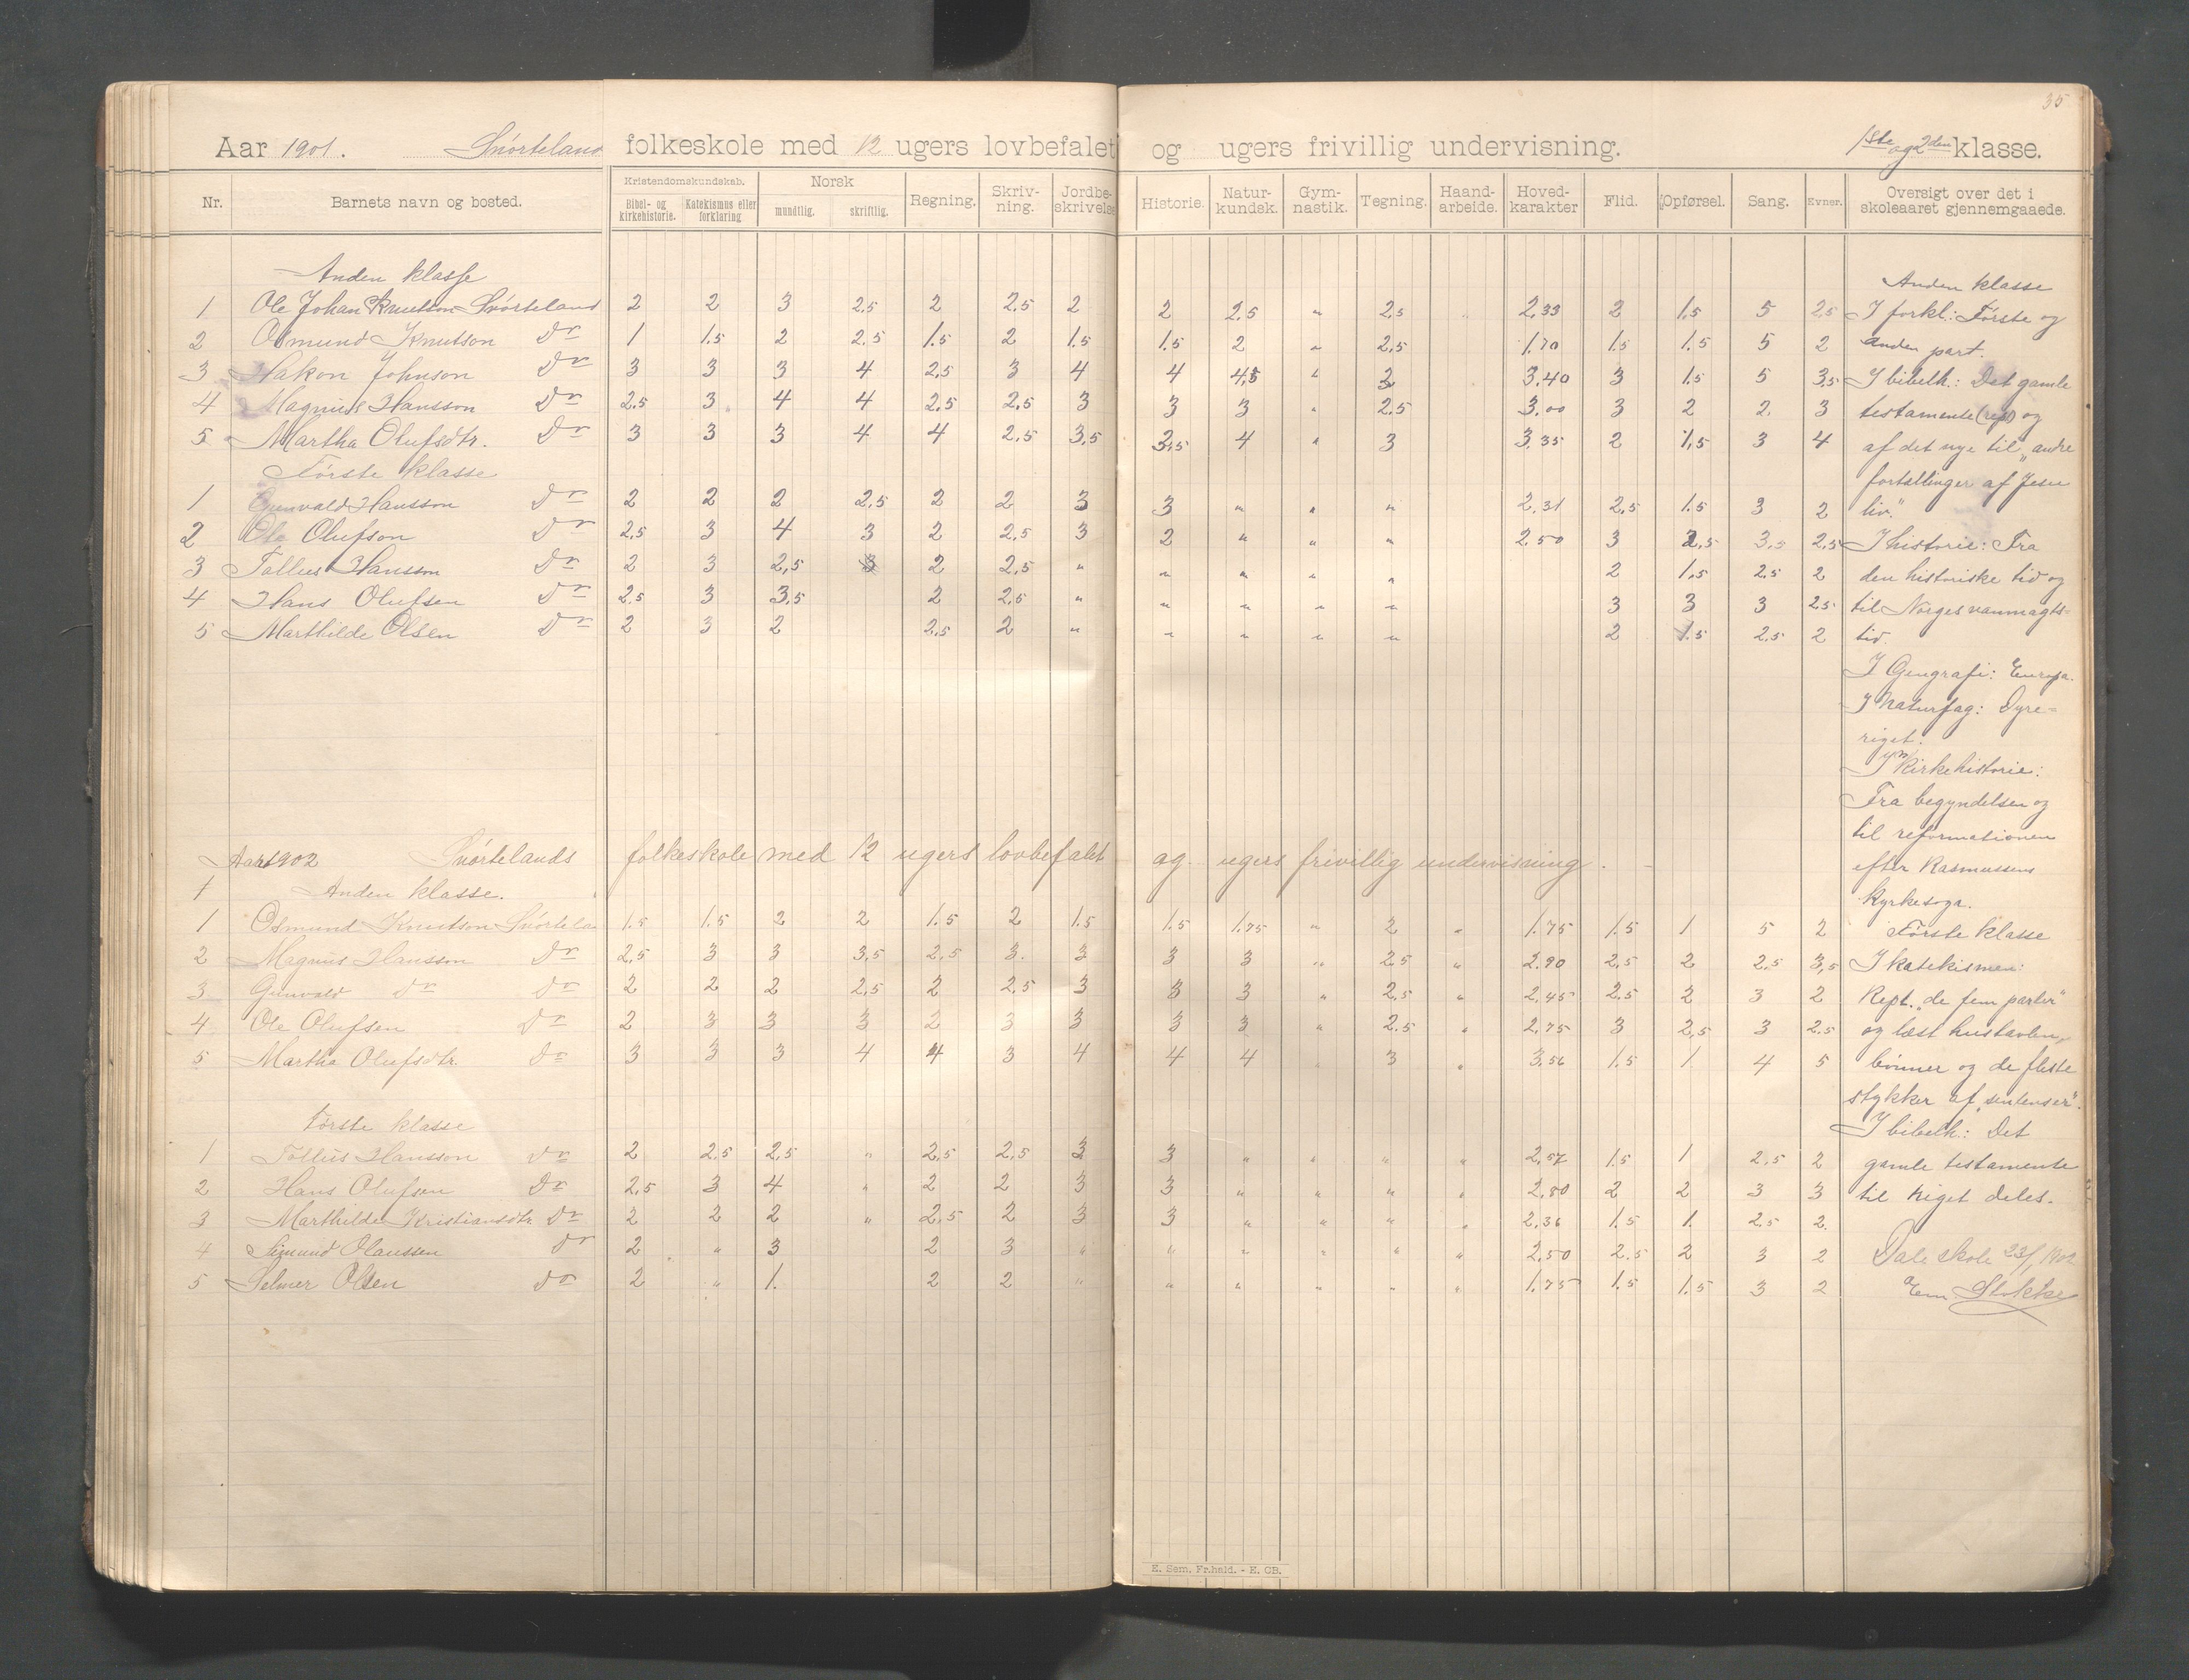 35
Aar 1901. Snórteland folkeskole med 12 ugers lovbefalet og ugers frivillig undervisning. 1ste og 2den klasse.
Nr. Barnets navn og bosted. Kristendomskundskab. Bibel- og kirkehistorie. Katekismus eller forklaring Norsk mundtlig. skriftlig. Regning. Skriv-ning. Jordbe-skrivelse Historie. Natur-kundsk. Gym-nastik. Tegning. Haand-arbeide. Hoved-karakter Flid. Opførsel. Sang. Evner. Oversigt over det i skoleaaret gjennemgaaede.
Anden klasse
1 Ole Johan Knutson Snórteland 2 2 3 2,5 2 2,5 2 2 2,5 " 2,5 2,33 2 1,5 5 2,5
2 Osmund Knutson Do 1 1,5 2 2,5 1,5 2 1,5 1,5 2 " 2,5 1,70 1,5 1,5 5 2
3 Hakon Johnson Do 3 3 3 4 2,5 3 4 4 4,5 " 2 3.40 3 1,5 5 3,5
4 Magnus Hansson Do 2,5 3 4 4 2,5 2,5 3 3 3 " 2,5 3.00 3 2 2 3
5 Martha Olufsdtr. Do 3 3 3 4 4 2,5 3,5 3,5 4 " 3 3.35 2 1,5 3 4
Første klasse
1 Gunvald Hansson Do 2 2 2 2,5 2 2 3 3 " " " 2.31 2,5 1,5 3 2
2 Ole Olufson Do 2,5 3 4 3 2 2,5 3 2 " " " 2.50 3 2,5 3,5 2,5
3 Tollus Hansson Do 2 3 2,5 3 2 2,5 " " " " " 2 1,5 2,5 2
4 Hans Olufsen Do 2,5 3 3,5 2 2,5 " " " " " 3 3 3 2,5
5 Marthilde Olsen Do 2 3 2 2,5 2 " " " " " 2 1,5 2,5 2
Anden klasse
I forkl: Første og
anden part.
I bibelh.: Det gamle
testamente (rept) og
af det nye til "andre
fortællinger af Jesu
liv."
I historie: Fra
den historiske tid og
til Norges vanmagts-
tid.
I Geografi: Europa.
I Naturfag: Dyre-
riget.
I Kirkehistorie:
Fra begyndelsen og
til reformationen
efter Rasmussens
Kyrkesoga.
Første klasse
I katekismen:
Rept. "de fem parter"
og læst hustavlen,
bønner og de fleste
stykker af "sentenser".
I bibelh.: Det
gamle testamente
til riget deles.
Dale skole 23/1 1902
Em Stokke
Aar 1902 Snórtelands folkeskole med 12 ugers lovbefalet og ugers frivillig undervisning.
1 Anden klasse.
1 Osmund Knutson Snórtelan 1.5 1.5 2 2 1.5 2 1.5 1.5 1.75 " 2 " 1.75 1.5 1 5 2
2 Magnus Hansson Do 2,5 3 3 3,5 2,5 3. 3 3 3 " 2,5 " 2.90 2,5 2 2,5 3,5
3 Gunvald Do Do 2 2 2 2,5 2 2,5 3 3 3 " 2,5 " 2,45 2,5 2 3 2
4 Ole Olufsen Do 2 3 3 3 2 3 3 3 3 " 2.5 " 2,75 3 2,5 3 2.5
5 Martha Olufsdtr. Do 3 3 3 4 4 3 4 4 4 " 3 " 3,56 1.5 1 4 5
Første klasse
1 Tollus Hansson Do 2 2,5 2,5 " 2,5 2,5 3 3 " " " " 2,57 1.5 1 2,5 2
2 Hans Olufsen Do 2,5 3 4 " 2 2 3 3 " " " " 2,80 2 2 3 3
3 Marthilde Kristiansdtr. Do 2 2 2 " 2,5 2 3 3 " " " " 2,36 1.5 1. 2,5 2.
4 Simund Olaussen Do 2 " 3 2 3 " " " " " " 2,50 2.5 2 3 2
5 Selmer Olsen Do 2 " 1. 2 2 " " " " " " 1.75 1.5 1.5 3 2
E. Sem, Fr.hald. - E. CB.